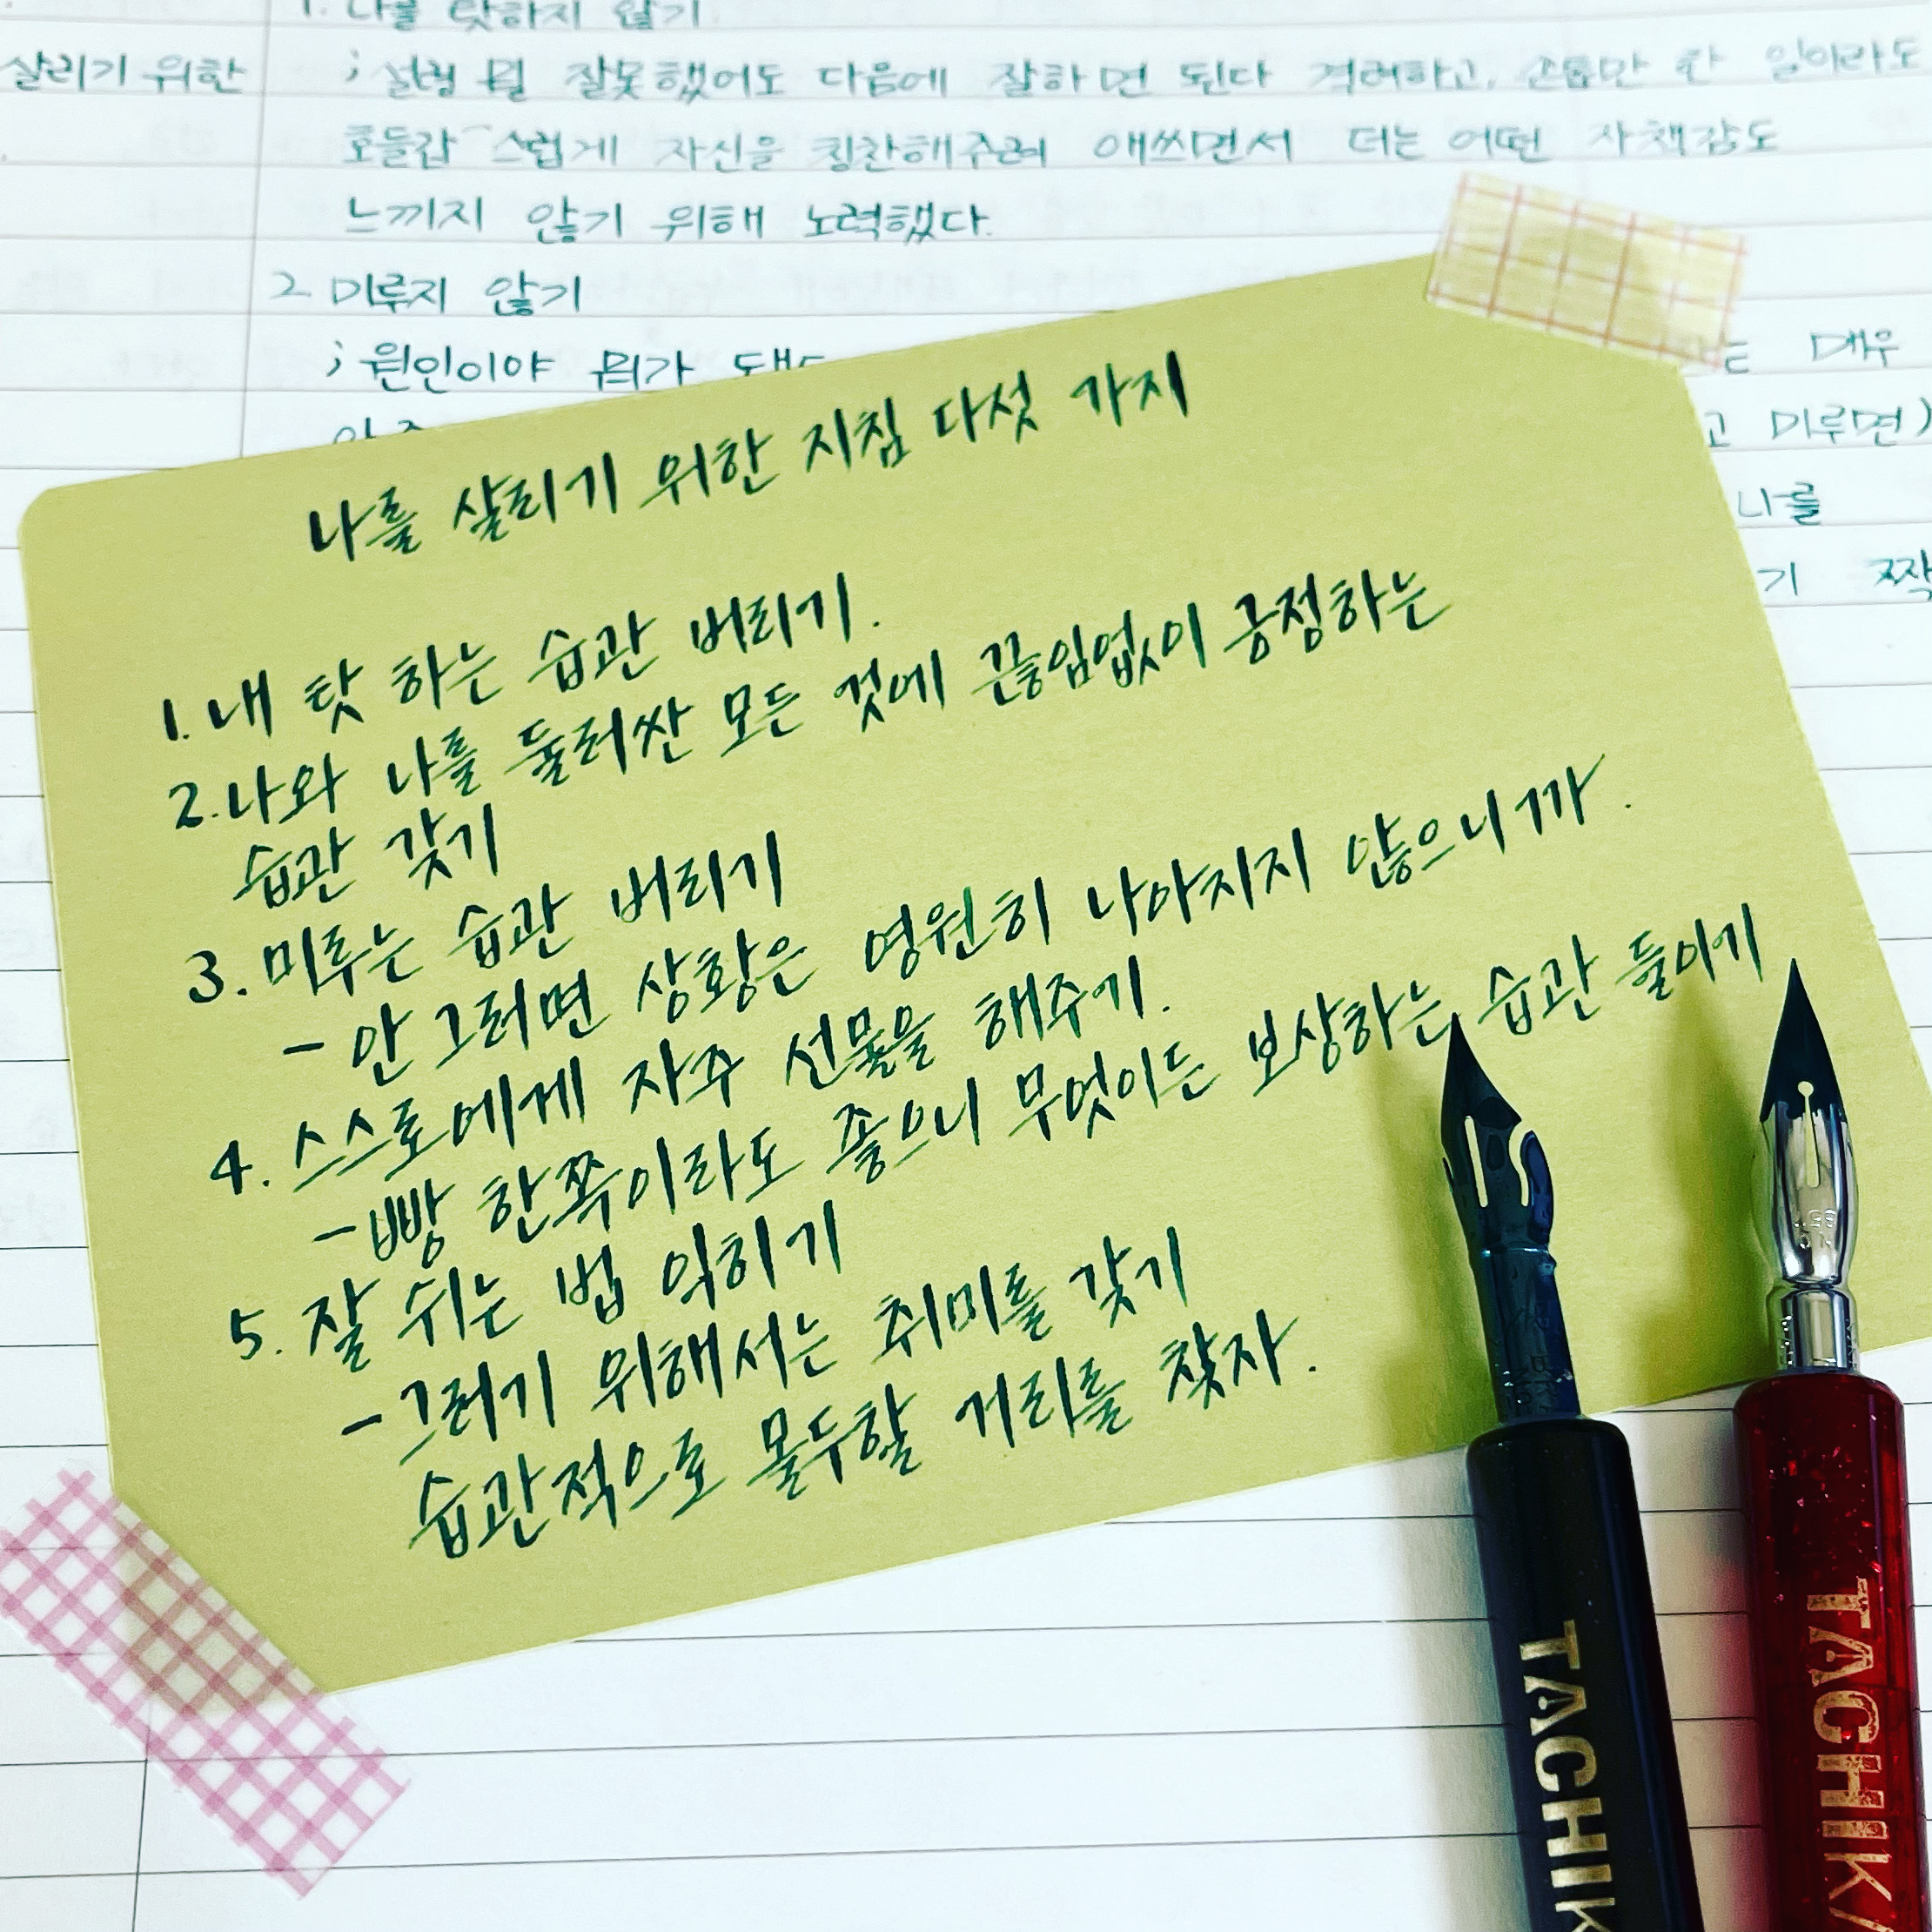 1. 나를 탓하지 않기
살리기 위한
; 설령 뭘 잘못했어도 다음에 잘하면 된다 격려하고, 손톱만 한 일이라도
호들갑스럽게 자신을 칭찬해주려 애쓰면서 더는 어떤 자책감도
느끼지 않기 위해 노력했다.
2 미루지 않기
; 원인이야 뭐가 됐
매우
고 미루면)
나를
기 짝
나를 살리기 위한 지침 다섯 가지
1. 내 탓 하는 습관 버리기.
2. 나와 나를 둘러싼 모든 것에 끊임없이 긍정하는
습관 갖기
3. 미루는 습관 버리기
- 안 그러면 상황은 영원히 나아지지 않으니까.
4. 스스로에게 자주 선물을 해주기.
- 빵 한쪽이라도 좋으니 무엇이든 보상하는 습관 들이기
5. 잘 쉬는 법 익히기
- 그러기 위해서는 취미를 갖기
습관적으로 몰두할 거리를 찾자.
TACHIK
TACHIKA